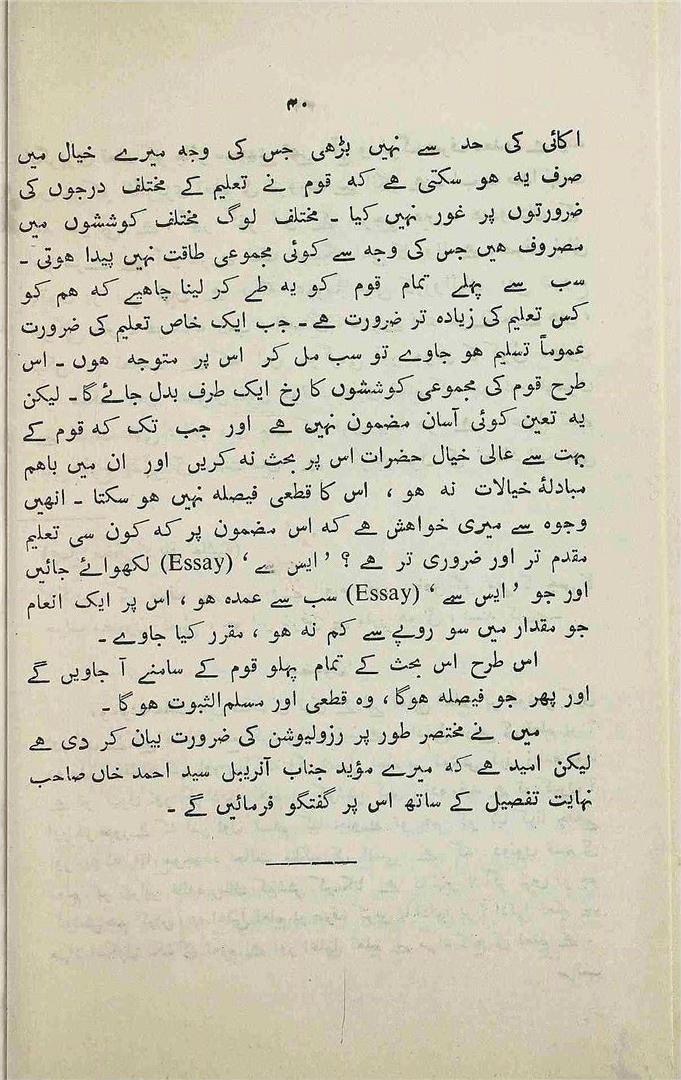 ۳۰
اکائی کی حد سے نہیں بڑھی جس کی وجه میرے خیال میں
صرف یه هو سکتی ہے که قوم نے تعلیم کے مختلف درجوں کی
ضرورتوں پر غور نہیں کیا ۔ مختلف لوگ مختلف کوششوں میں
مصروف هیں جس کی وجه سے کوئی مجموعی طاقت نہیں پیدا هوتی ۔
سب سے پہلے تمام قوم کو یه طے کر لینا چاهیے که هم کو
کس تعلیم کی زیاده تر ضرورت ہے ۔ جب ایک خاص تعلیم کی ضرورت
عموماً تسلیم هو جاوے تو سب مل کر اس پر متوجه هوں ۔ اس
طرح قوم کی مجموعی کوششوں کا رخ ایک طرف بدل جائے گا ۔ لیکن
یه تعین کوئی آسان مضمون نہیں ہے اور جب تک که قوم کے
بہت سے عالی خیال حضرات اس پر بحث نه کریں اور ان میں باهم
مبادلۂ خیالات نه هو ، اس کا قطعی فیصله نہیں هو سکتا ۔ انھیں
وجوه سے میری خواهش ہے که اس مضمون پر که کون سی تعلیم
مقدم تر اور ضروری تر ہے ؟ ’ ایس سے ‘ (Essay) لکھوائے جائیں
اور جو ’ ایس سے ‘ (Essay) سب سے عمده هو ، اس پر ایک انعام
جو مقدار میں سو روپے سے کم نه هو ، مقرر کیا جاوے ۔
اس طرح اس بحث کے تمام پہلو قوم کے سامنے آ جاویں گے
اور پھر جو فیصله هوگا ، وه قطعی اور مسلم الثبوت هوگا ۔
میں نے مختصر طور پر رزولیوشن کی ضرورت بیان کر دی ہے
لیکن امید ہے که میرے مؤید جناب آنریبل سید احمد خاں صاحب
نہایت تفصیل کے ساتھ اس پر گفتگو فرمائیں گے ۔